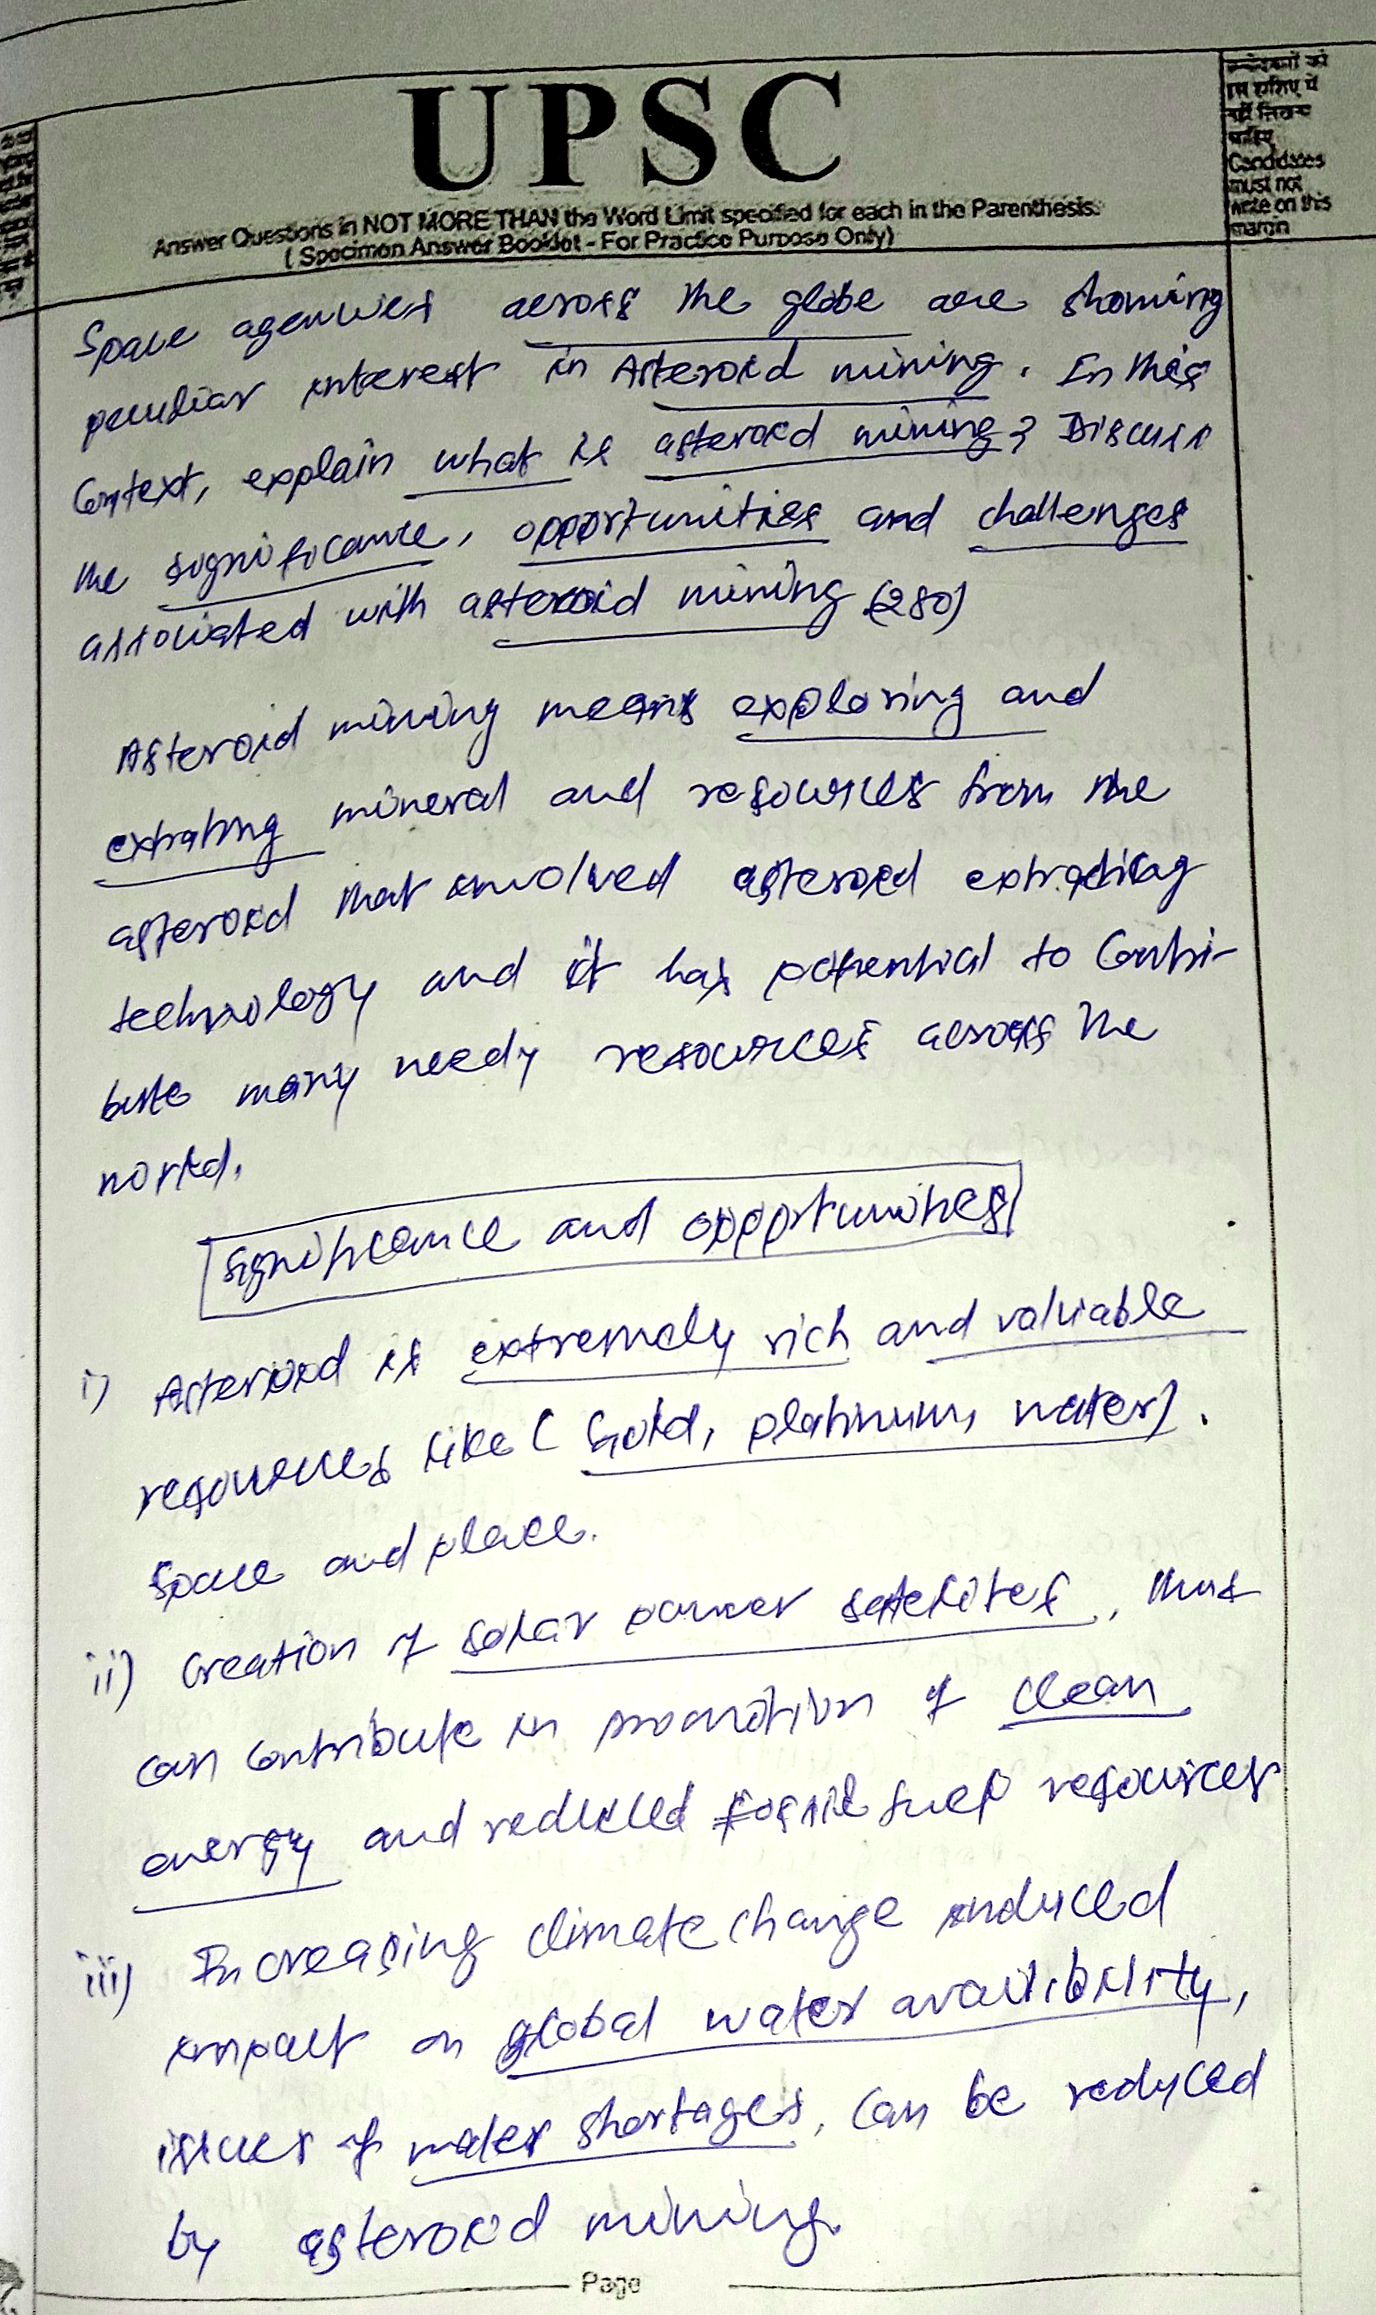 UPSC
Answer Questions in NOT MORE THAN the Word Limit specified for each in the Parenthesis.
( Specimen Answer Booklet - For Practice Purpose Only)
उम्मीदवारों को
इस हाशिए में
नहीं लिखना
चाहिए
Candidates
must not
write on this
margin
Space agencies across the globe are showing
peculiar interest in Asteroid mining. In this
Context, explain what is asteroid mining? Discuss
the significance, opportunities and challenges
associated with asteroid mining (250)
Asteroid mining means exploring and
extrating mineral and resources from the
asteroid that involved asteroid extracting
technology and it has potential to Contri-
bute many needy resources across the
world.
Significance and opportunities
i) Asteroid is extremely rich and valuable
resources like (Gold, platinum, water).
Space and place.
ii) Creation of solar power satelites, thus
can contribute in promotion of clean
energy and reduced fossil fuel resources
iii) Increasing climate change induced
impact on global water availibility,
issues of water shortages, can be reduced
by asteroid mining.
Page